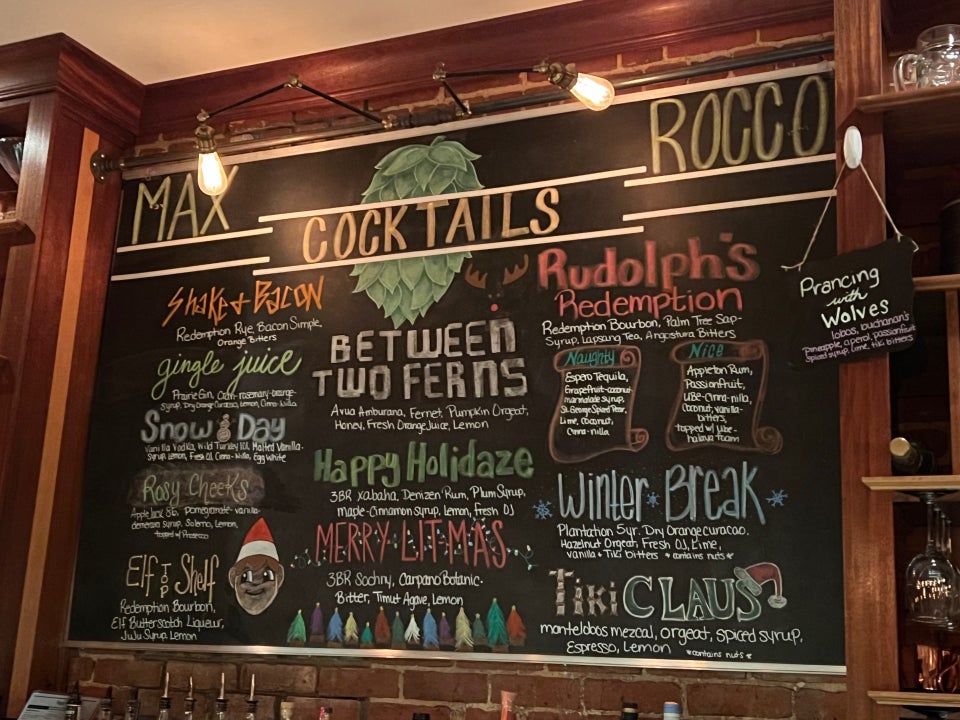 MAX
ROCCO
COCKTAILS
Shake + Bacon
Redemption Rye, Bacon Simple,
Orange Bitters
gingle juice
Prairie Gin, Cran-rosemary-orange-
syrup, Dry Orange Curacao, Lemon, Cinna-nilla
Snow Day
Vanilla Vodka, Wild Turkey 101, Malted Vanilla-
Syrup, Lemon, Fresh OJ, Cinna-Nilla, Egg White
Rosy Cheeks
Apple Jack 86, Pomegranate-vanilla-
demerara syrup, Solerno, Lemon,
topped w/ Prosecco
Elf TOP Shelf
Redemption Bourbon,
Elf Butterscotch Liqueur,
JuJu Syrup, Lemon
BETWEEN
TWO FERNS
Avua Amburana, Fernet, Pumpkin Orgeat,
Honey, Fresh Orange Juice, Lemon
Happy Holidaze
3BR Xabaha, Denizen Rum, Plum Syrup,
maple-Cinnamon syrup, Lemon, Fresh OJ
MERRY LIT-MAS
3BR Sochny, Carpano Botanic-
Bitter, Timut Agave, Lemon
Rudolph's
Redemption
Redemption Bourbon, Palm Tree Sap-
Syrup, Lapsang Tea, Angostura Bitters
Naughty
Espero Tequila,
Grapefruit-coconut-
marmalade syrup,
St. George Spiced Pear,
Lime, Coconut,
Cinna-nilla
Nice
Appleton Rum,
Passionfruit,
UBE-Cinna-nilla,
Coconut, Vanilla-
bitters,
topped w/ Ube-
halaya foam
Winter Break
Plantation 5yr. Dry Orange curacao,
Hazelnut Orgeat, Fresh OJ, Lime,
Vanilla + Tiki bitters *contains nuts*
Tiki CLAUS
montelobos mezcal, orgeat, spiced syrup,
Espresso, Lemon *contains nuts*
Prancing
with
Wolves
lobos, buchanan's
pineapple, aperol, passionfruit
spiced syrup, lime, tiki bitters